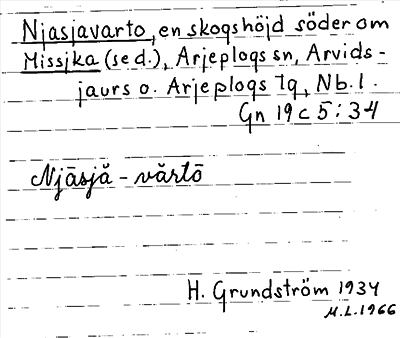 Njasjavarto, en skogshöjd söder om
Missjka (se d.), Arjeplogs sn, Arvids-
jaurs o. Arjeplogs lq, Nb. l.
Gn 19 c 5:34
Njāsjă - vărtō
H. Grundström 1934
M.L. 1966